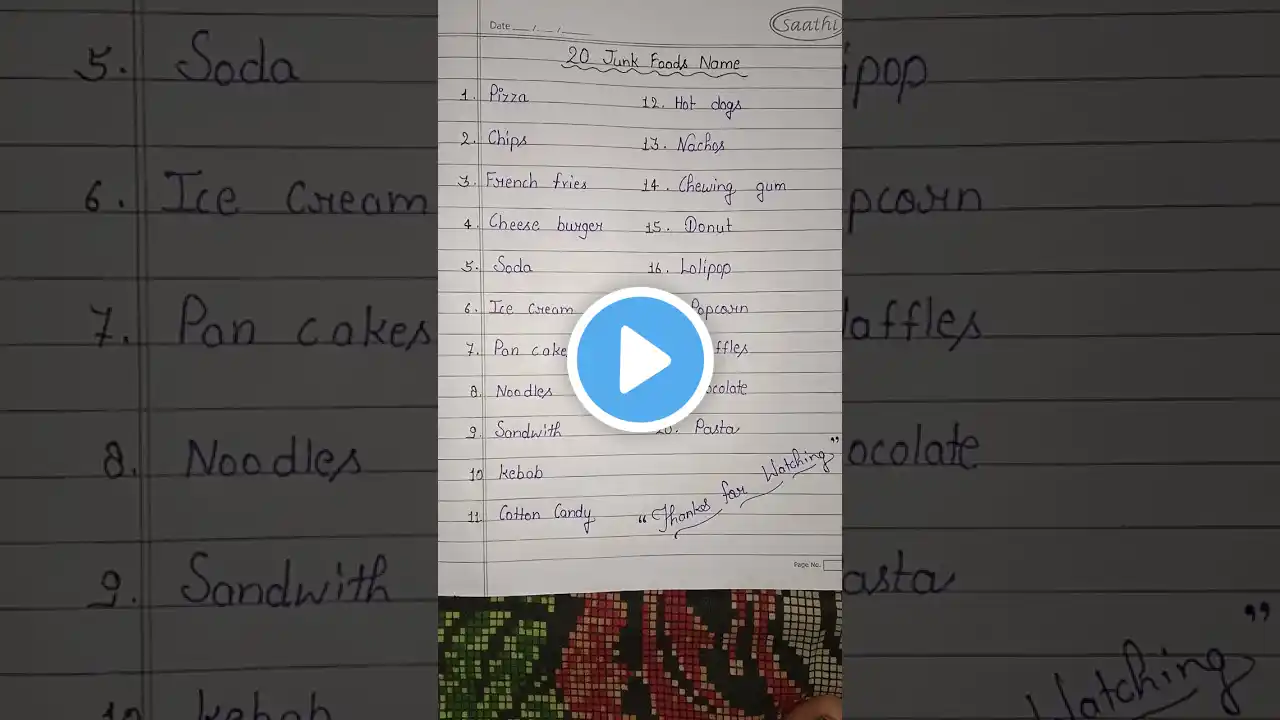 Date
Saathi
20 Junk Foods Name
1. Pizza
2. Chips
3. French fries
4. Cheese burger
5. Soda
6. Ice cream
7. Pan cake
8. Noodles
9. Sandwith
10 kebab
11 Cotton Candy
12. Hot dogs
13. Nachos
14. Chewing gum
15. Donut
16. Lolipop
Popcorn
ffles
ocolate
20. Pasta
“Thanks for Watching”
Page No.
5. Soda
6. Ice cream
7. Pan cakes
8. Noodles
9. Sandwith
10 kebab
ipop
pcorn
affles
ocolate
asta
Watching”